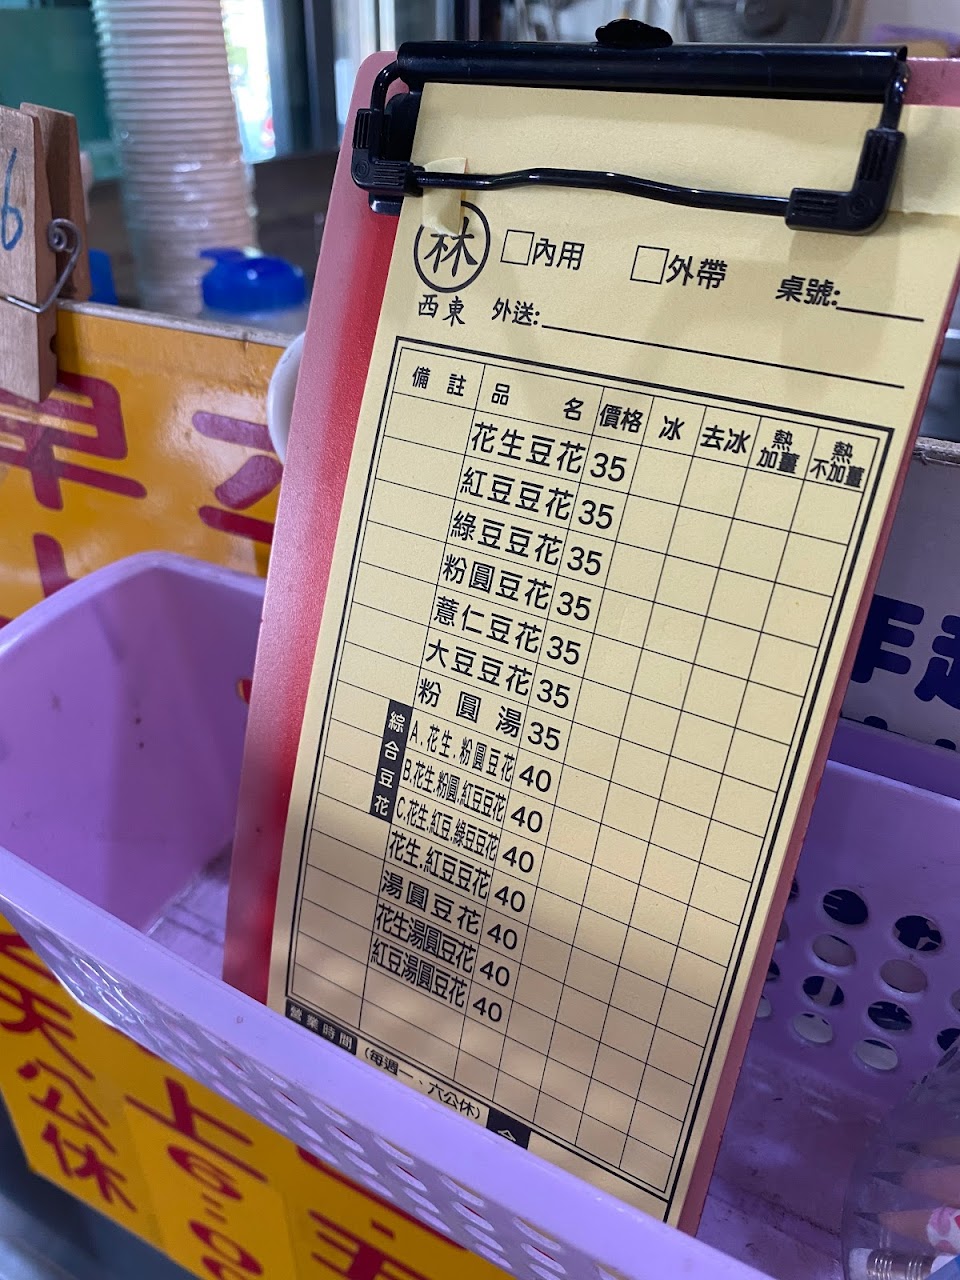 6
林
西東
□內用 □外帶 桌號:
外送:
備註 品名 價格 冰 去冰 熱加薑 熱不加薑
花生豆花 35
紅豆豆花 35
綠豆豆花 35
粉圓豆花 35
薏仁豆花 35
大豆豆花 35
粉圓湯 35
綜合豆花
A.花生.粉圓豆花 40
B.花生.粉圓.紅豆豆花 40
C.花生.紅豆.綠豆豆花 40
花生.紅豆豆花 40
湯圓豆花 40
花生湯圓豆花 40
紅豆湯圓豆花 40
營業時間 (每週一、六公休)
早
天公休
上